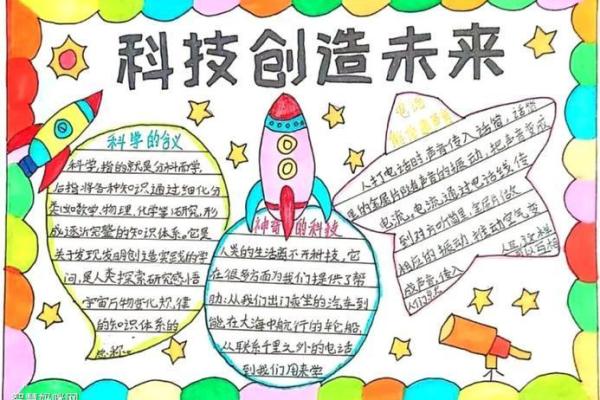 科技创造未来
科学的含义
科学,指的就是分科而学,
后指将各种知识通过细化分
类(如数学、物理、化学等)研究,形
成逐渐完整的知识体系。它是
关于发现发明创造实践的学
问,是人类探索研究感悟
宇宙万物变化规律
的知识体系的
总称。
神奇的科技
人类的生活离不开科技,它
在很多方面为我们提供了帮
助:从我们出门乘坐的汽车到
能在大海中航行的轮船,
从联系千里之外的电话
到我们用来学
电话
人打电话时,声音传入话筒,话筒
里的金属片随着声音的振动,把声音变成
电流,电流通过电话线传
到对方听筒里,金属片做
相应的振动,推动空气变
成声音,传入
人们耳
智慧妈咪网